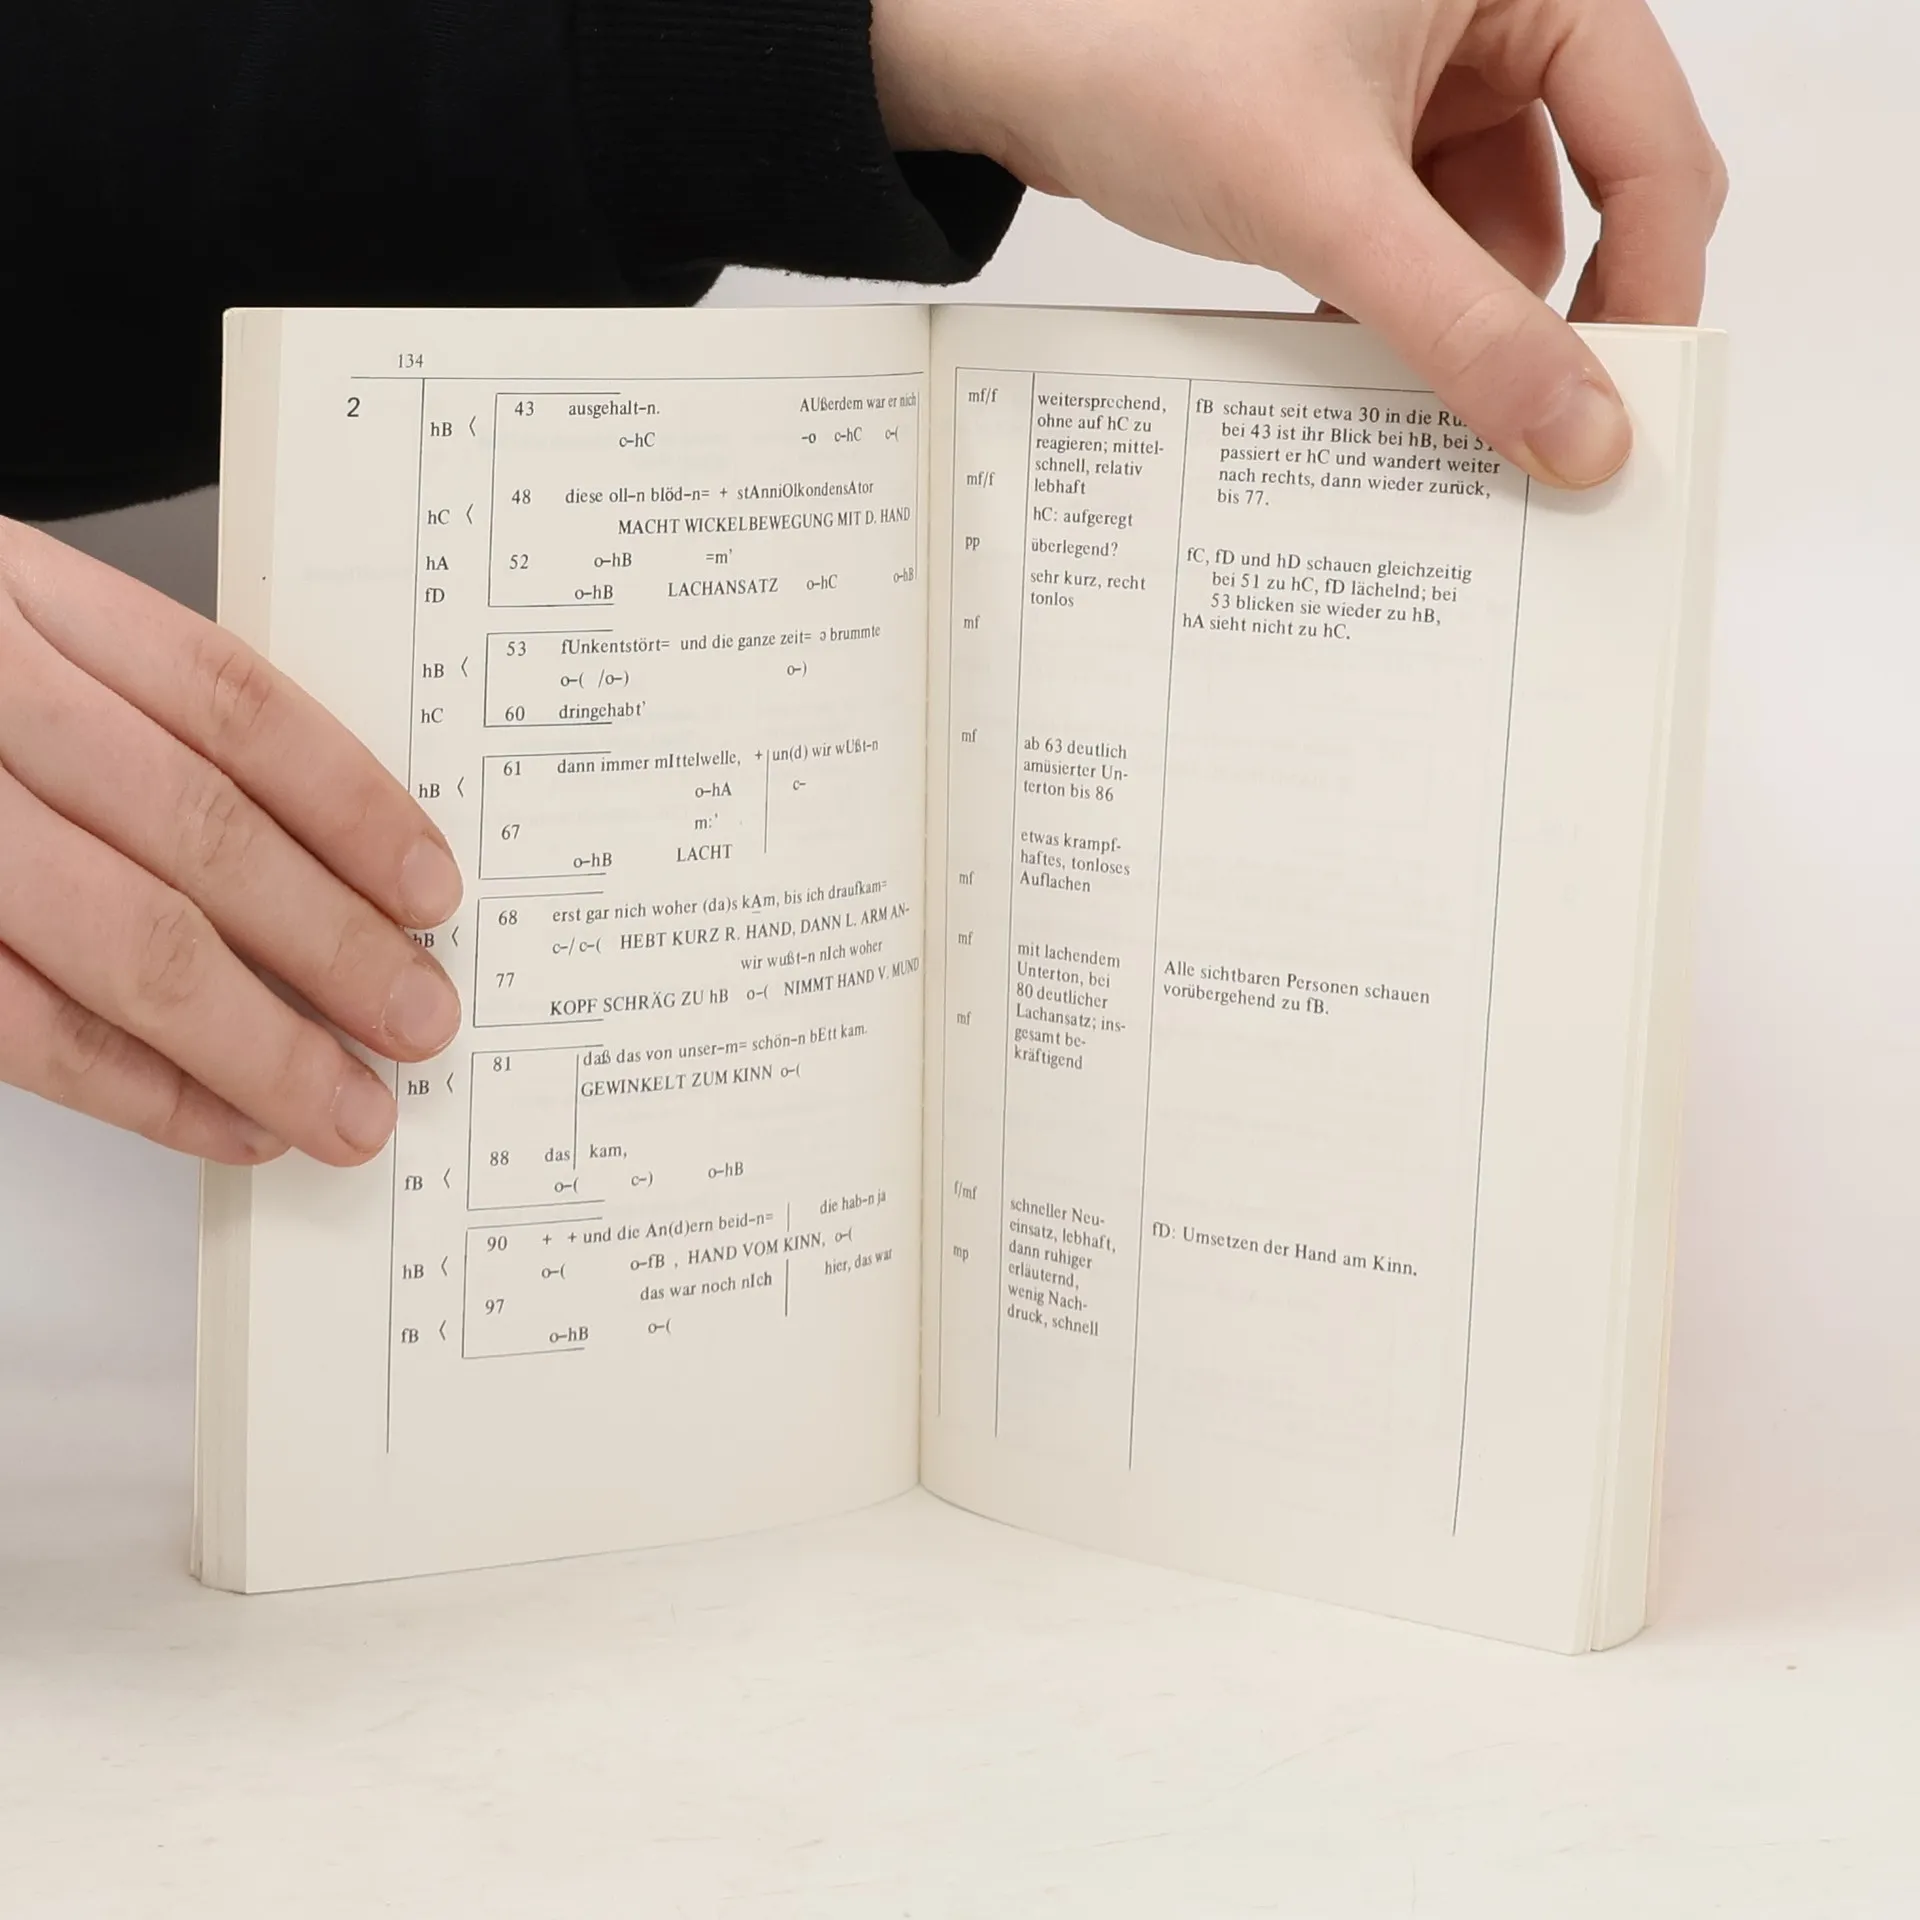 134
2
hB ⟨ 43 ausgehalt-n. AUßerdem war er nich
c-hC -o c-hC c-(
hC ⟨ 48 diese oll-n blöd-n= + stAnniOlkondensAtor
MACHT WICKELBEWEGUNG MIT D. HAND
hA 52 o-hB =m'
fD o-hB LACHANSATZ o-hC o-hB
hB ⟨ 53 fUnkentstört= und die ganze zeit= ɔ brummte
o-( /o-) o-)
hC 60 dringehabt'
hB ⟨ 61 dann immer mIttelwelle, + un(d) wir wUßt-n
o-hA c-
67 m:'
o-hB LACHT
hB ⟨ 68 erst gar nich woher (da)s kAm, bis ich draufkam=
c-/ c-( HEBT KURZ R. HAND, DANN L. ARM AN-
77 wir wußt-n nIch woher
KOPF SCHRÄG ZU hB o-( NIMMT HAND V. MUND
hB ⟨ 81 daß das von unser-m= schön-n bEtt kam.
GEWINKELT ZUM KINN o-(
88 das kam,
fB ⟨ o-( c-) o-hB
90 + + und die An(d)ern beid-n= die hab-n ja
hB ⟨ o-( o-fB , HAND VOM KINN, o-(
97 das war noch nIch hier, das war
fB ⟨ o-hB o-(
mf/f
mf/f
pp
mf
mf
mf
mf
mf
f/mf
mp
weitersprechend,
ohne auf hC zu
reagieren; mittel-
schnell, relativ
lebhaft
hC: aufgeregt
überlegend?
sehr kurz, recht
tonlos
ab 63 deutlich
amüsierter Un-
terton bis 86
etwas krampf-
haftes, tonloses
Auflachen
mit lachendem
Unterton, bei
80 deutlicher
Lachansatz; ins-
gesamt be-
kräftigend
schneller Neu-
einsatz, lebhaft,
dann ruhiger
erläuternd,
wenig Nach-
druck, schnell
fB schaut seit etwa 30 in die
bei 43 ist ihr Blick bei hB, bei
passiert er hC und wandert weiter
nach rechts, dann wieder zurück,
bis 77.
fC, fD und hD schauen gleichzeitig
bei 51 zu hC, fD lächelnd; bei
53 blicken sie wieder zu hB,
hA sieht nicht zu hC.
Alle sichtbaren Personen schauen
vorübergehend zu fB.
fD: Umsetzen der Hand am Kinn.